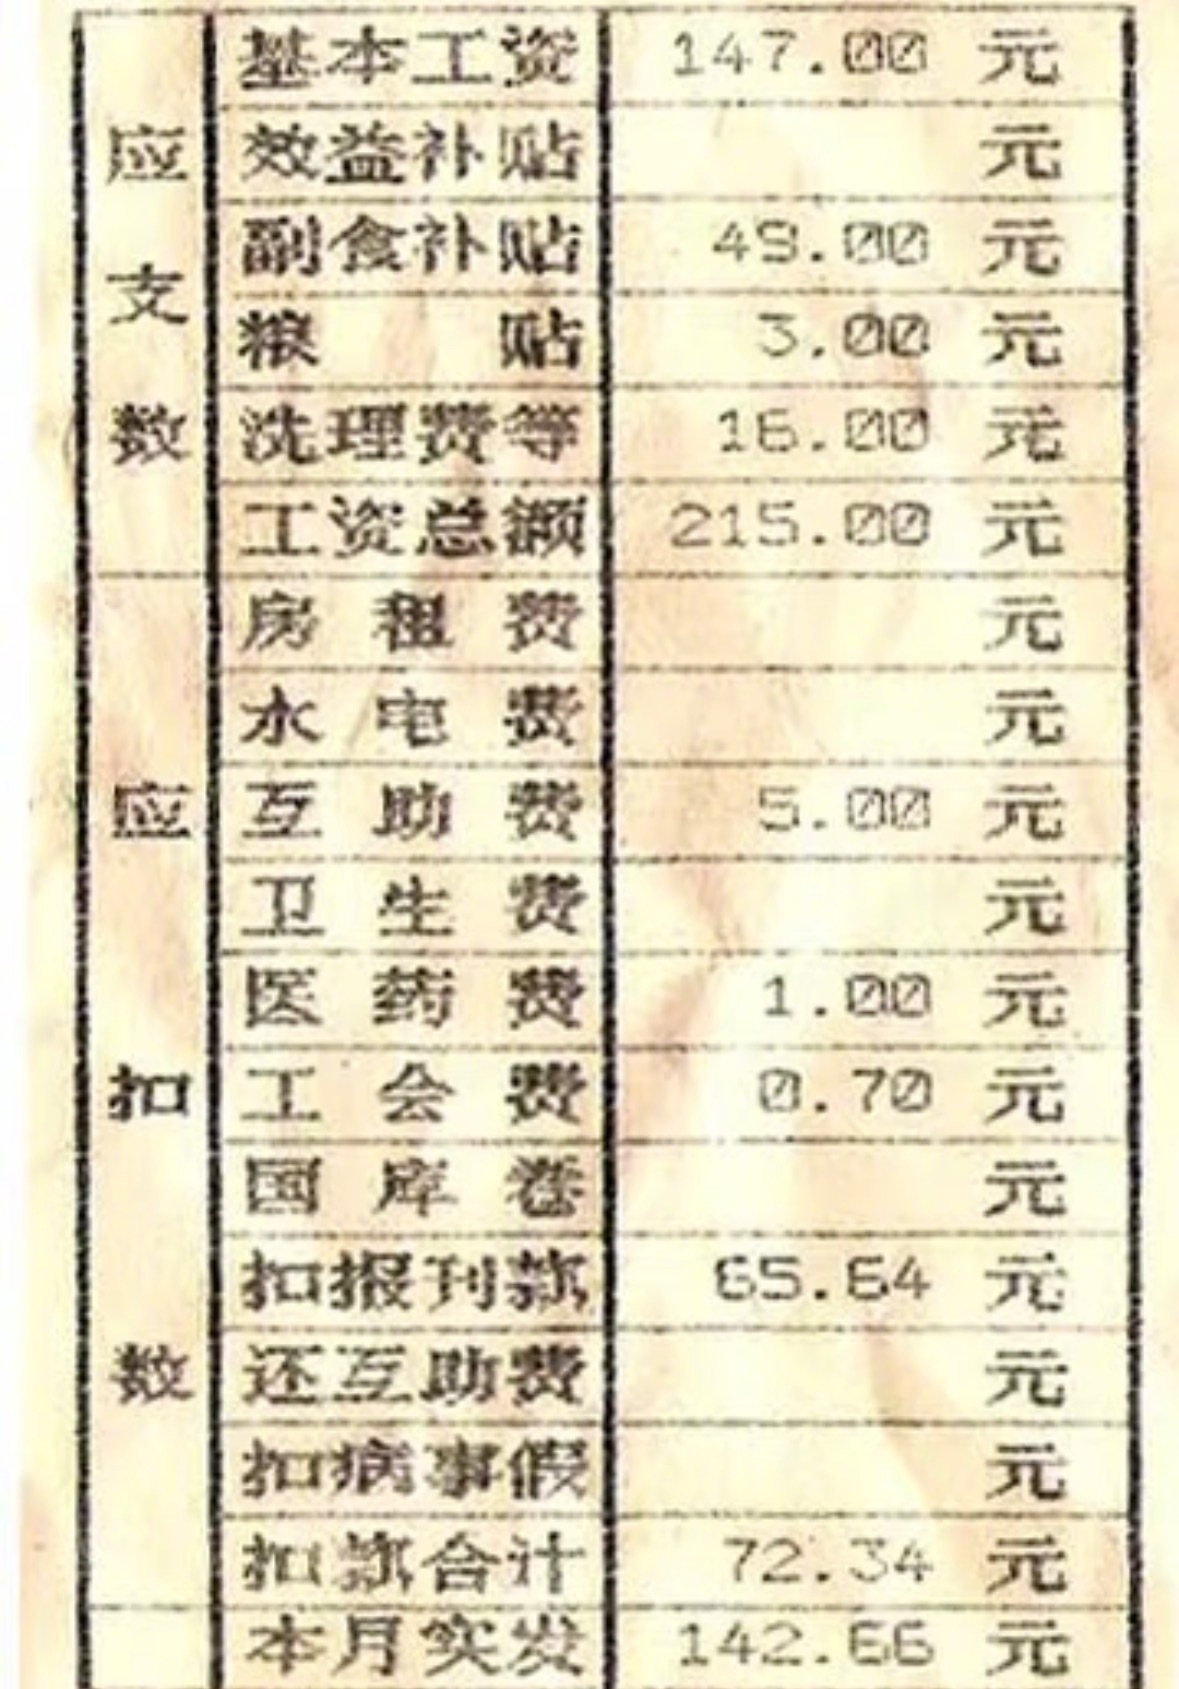 应支数
基本工资 147.00 元
效益补贴 元
副食补贴 49.00 元
粮贴 3.00 元
洗理费等 16.00 元
工资总额 215.00 元
应扣数
房租费 元
水电费 元
互助费 5.00 元
卫生费 元
医药费 1.00 元
工会费 0.70 元
国库卷 元
扣报刊款 65.64 元
还互助费 元
扣病事假 元
扣款合计 72.34 元
本月实发 142.66 元